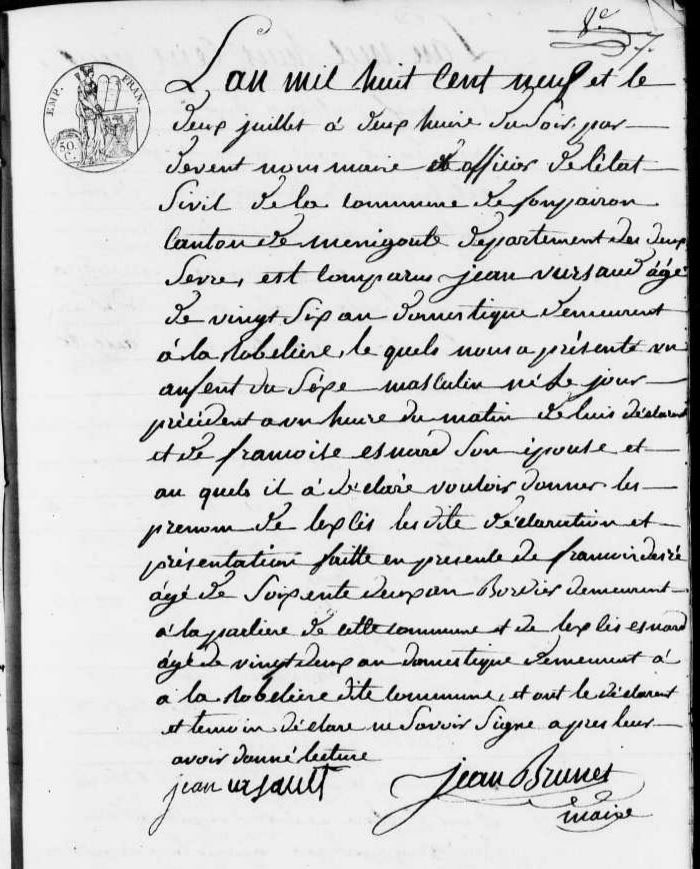 8e
7.
EMP. FRAN
50
C.
L'an mil huit Cent neuf et le
deux juillet à deux heure du Soir par
devent nous maire et officier de l'état
Sivil de la Commune de fonpairon
Canton de menigoute departement des deux
Sevre, est Comparus jean vursaud âgé
de vingt Six an domestique demeurent
à la Nobeliere, le quels nous a présenté un
anfent du Séxe masculin né Le jour
précédent a un heure du matin de luis déclarent
et de francoise esnard Son épouse et
au quels il à déclaré vouloir donner les
prenom de lexlis les dite déclaration et
présentation faitte en presente de francoi desré
âgé de Soixente deux an Bordier demeurent
à la parliere de cette commune et de lexlis esnard
âgé de vingt deux an domestique demeurent à
a la Nobeliere dite Commune, et ont le déclarent
et temoin déclare ne Savoir Signe apres leur
avoir donné lecture
jean ursault
jean Brunet
maire